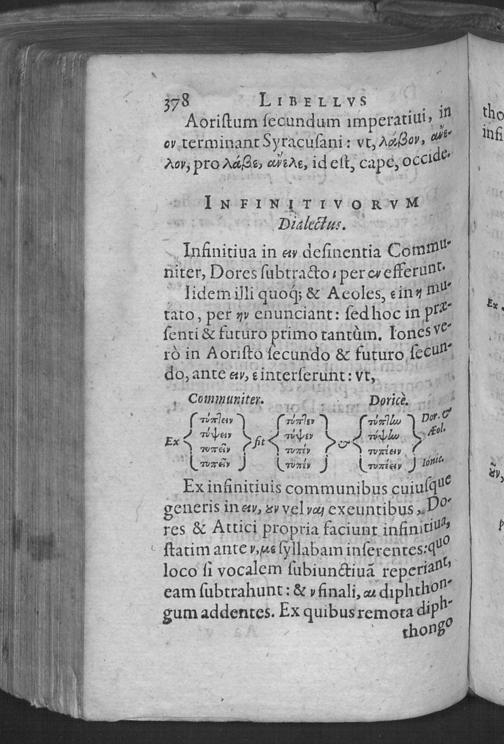 378 LIBELLVS
Aoriſtum ſecundum imperatiui, in
ον terminant Syracuſani: vt, λάβον, ἄνε-
λον, pro λάβε, ἄνελε, id eſt, cape, occide.
INFINITIVORVM
Dialectus.
Infinitiua in ειν deſinentia Commu-
niter, Dores ſubtracto ι per εν efferunt.
Iidem illi quoq; & Aeoles, ε in η mu-
tato, per ην enunciant: ſed hoc in præ-
ſenti & futuro primo tantùm. Iones ve-
rò in Aoriſto ſecundo & futuro ſecun-
do, ante ειν, ε interſerunt: vt,
Communiter. Doricè.
τύπτειν τύπτεν τύπτην Dor. &
τύψειν τύψεν τύψην Æol.
Ex τυπεῖν fit τυπέν & τυπέειν
τυπεῖν τυπέν τυπέειν Ionic.
Ex infinitiuis communibus cuiuſque
generis in ειν, ουν vel ναι exeuntibus, Do-
res & Attici propria faciunt infinitiua,
ſtatim ante ν, με ſyllabam inſerentes: quo
loco ſi vocalem ſubiunctiuã reperiant,
eam ſubtrahunt: & ν finali, αι diphthon-
gum addentes. Ex quibus remota diph-
thongo
tho
infi
Ex